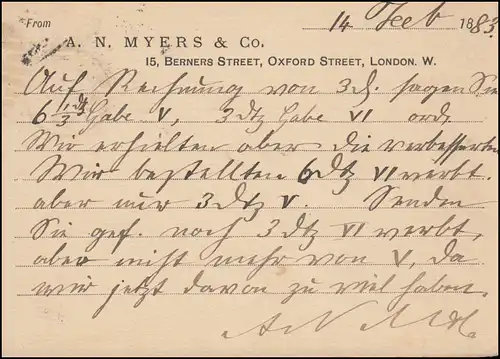 From
14 Feeb 1883.
A. N. MYERS & Co.
15, BERNERS STREET, OXFORD STREET, LONDON. W.
Auf Rechnung von 3d. sagen Sie
6 1/3 dtz Gabe V, 3 dtz Gabe VI ord.
Wir erhielten aber die verbesserten
Wir bestellten 6 dtz VI verbt.
aber nur 3 dtz V. Senden
Sie gef. noch 3 dtz VI verbt,
aber nicht mehr von V, da
wir jetzt davon zu viel haben.
A N M &